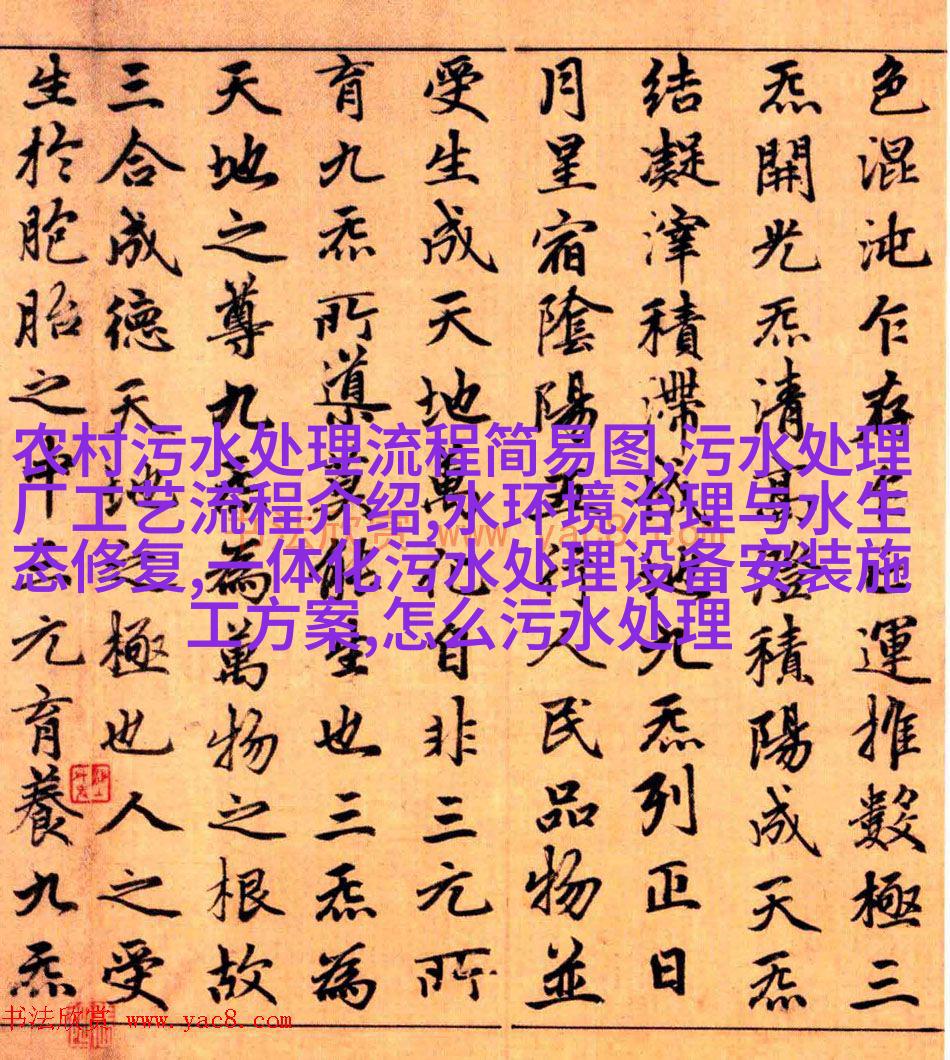 色混沌乍存乍亡運推數極三
炁開光炁清高澄積陽成天炁
結凝滓積滯成地九炁列正日
月星宿陰陽五行人民品物並
受生成天地萬化自非三元所
育九炁所導莫能生也三炁為
天地之尊九炁為萬物之根故
三合成德天地之極也人之受
生於胞胎之中三元育養九炁
农村污水处理流程简易图,污水处理
厂工艺流程介绍,水环境治理与水生
态修复,一体化污水处理设备安装施
工方案,怎么污水处理
书法欣赏 www.yac8.com